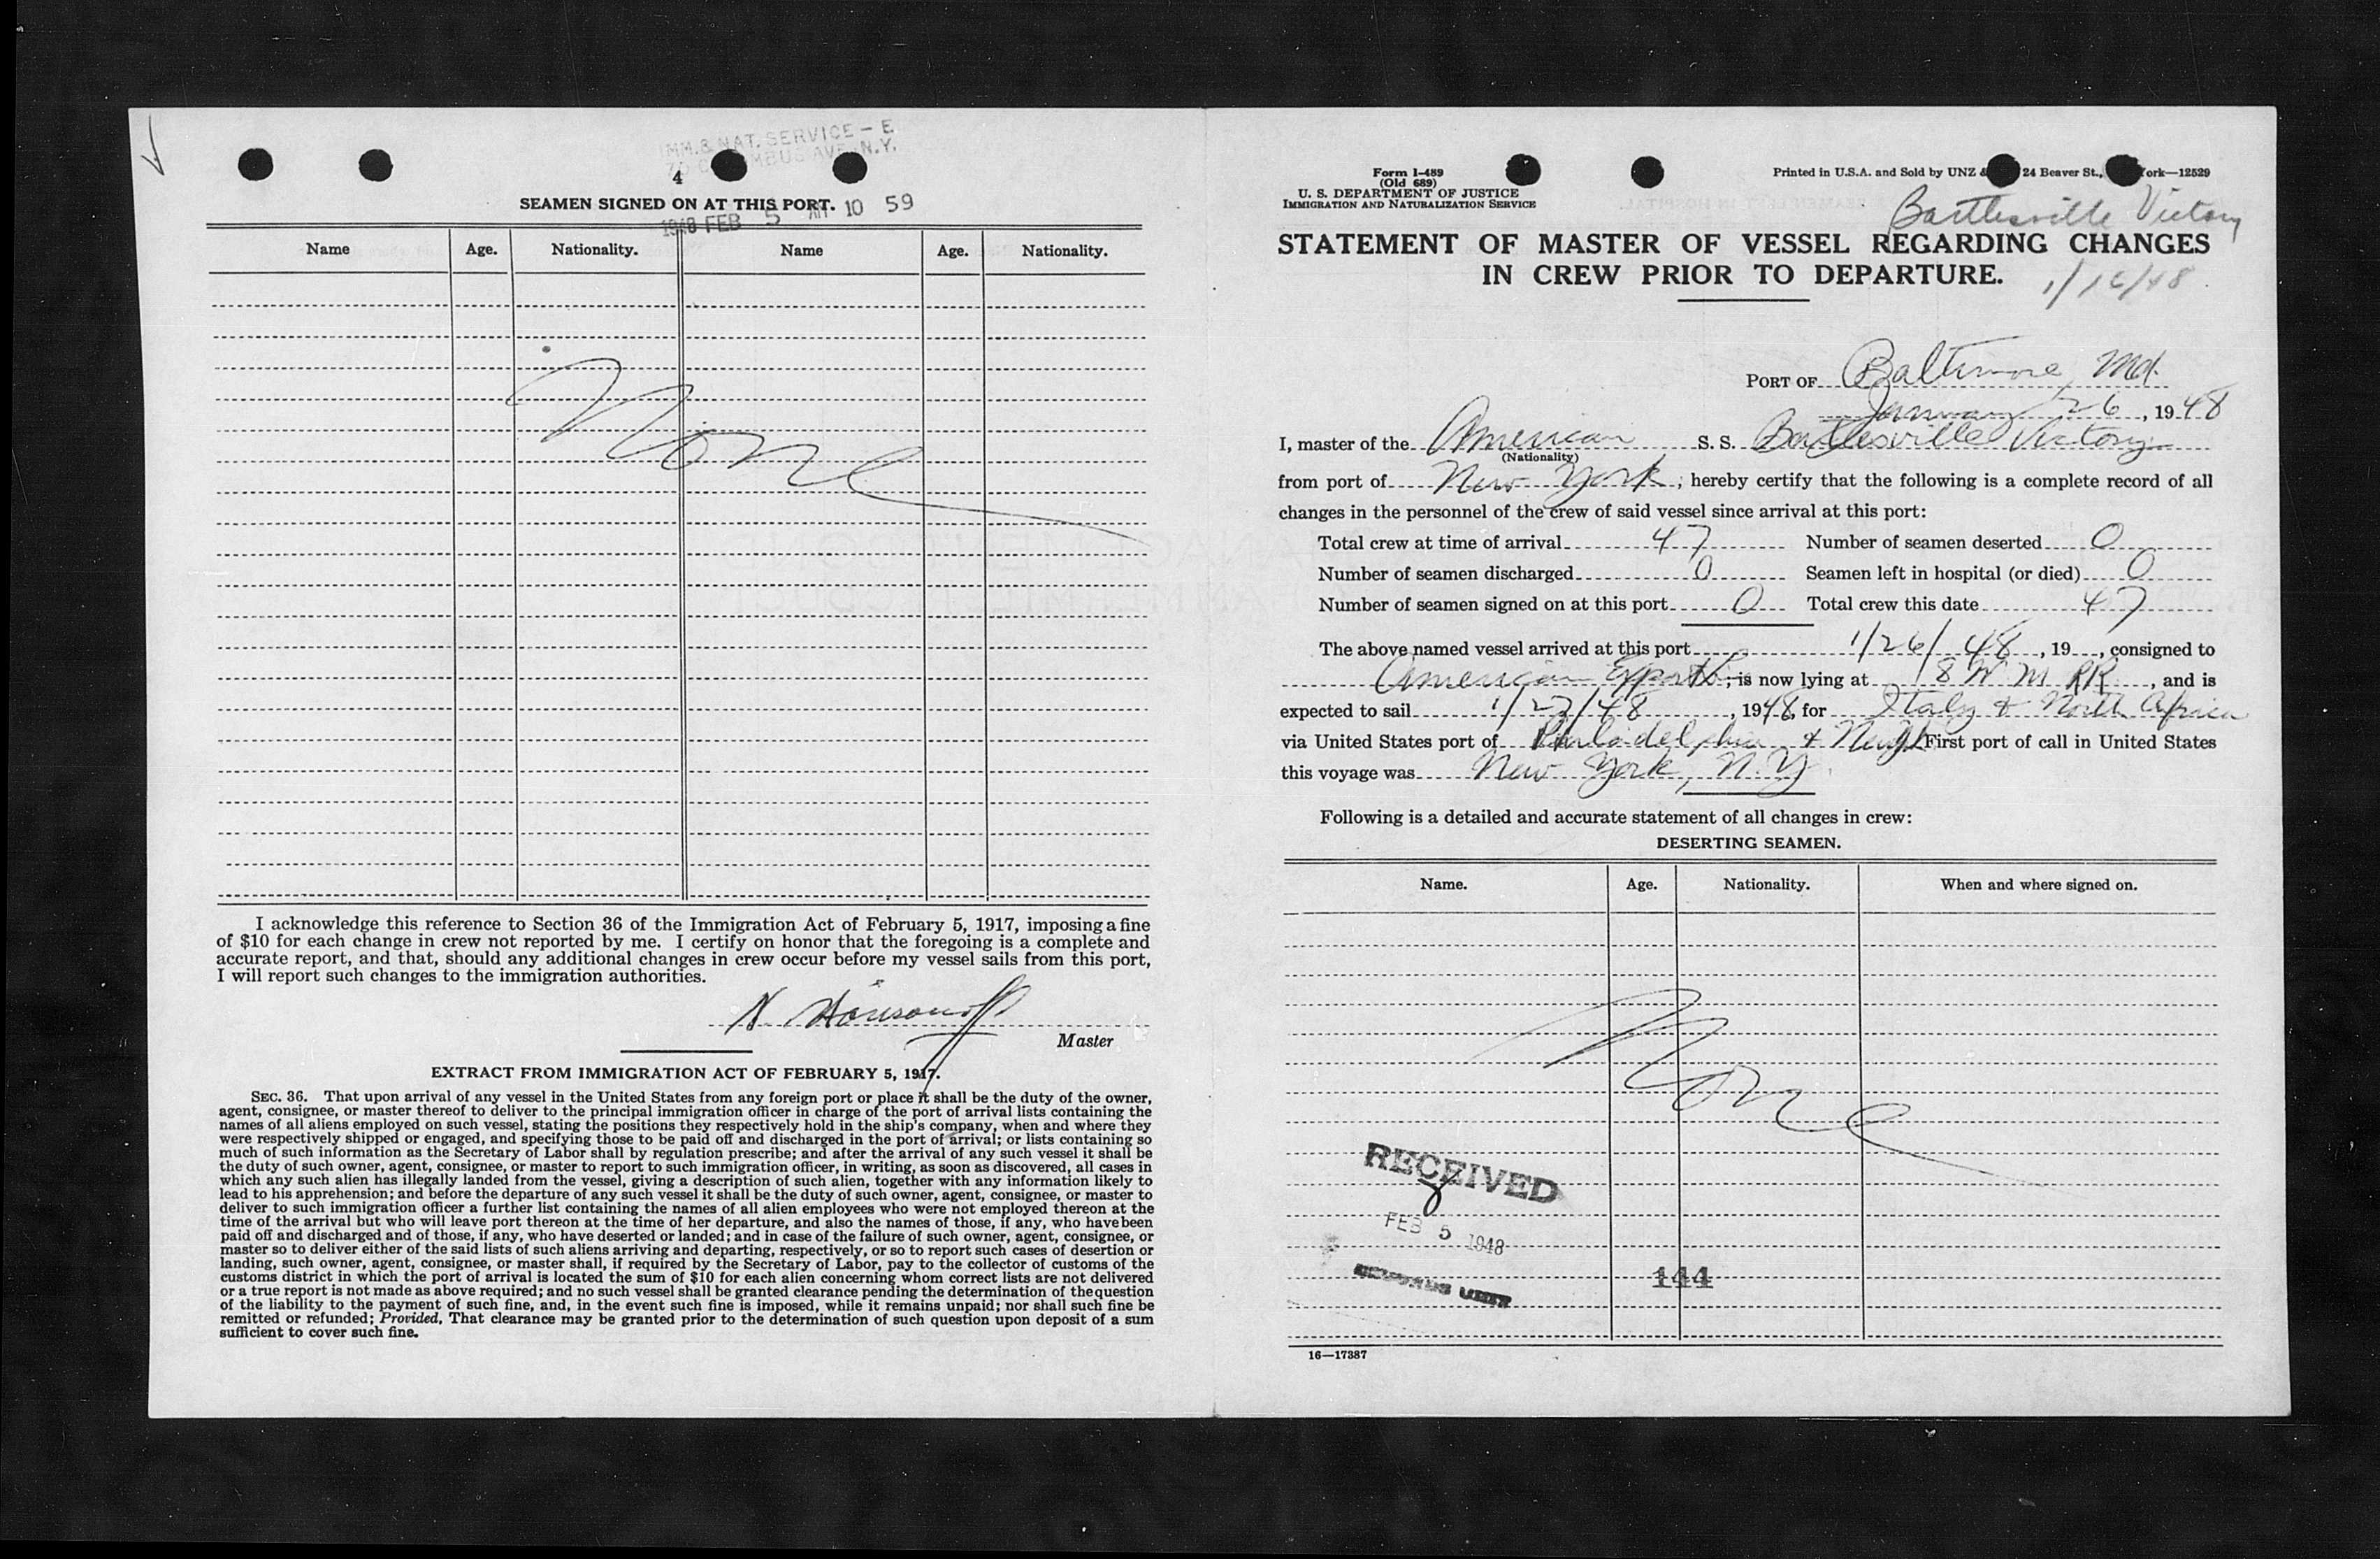 IMM. & NAT. SERVICE — E
AVE. N.Y.
4
SEAMEN SIGNED ON AT THIS PORT.
1948 FEB 5 AM 10 59
Name Age. Nationality. Name Age. Nationality.
None
I acknowledge this reference to Section 36 of the Immigration Act of February 5, 1917, imposing a fine
of $10 for each change in crew not reported by me. I certify on honor that the foregoing is a complete and
accurate report, and that, should any additional changes in crew occur before my vessel sails from this port,
I will report such changes to the immigration authorities.
Master
EXTRACT FROM IMMIGRATION ACT OF FEBRUARY 5, 1917.
SEC. 36. That upon arrival of any vessel in the United States from any foreign port or place it shall be the duty of the owner,
agent, consignee, or master thereof to deliver to the principal immigration officer in charge of the port of arrival lists containing the
names of all aliens employed on such vessel, stating the positions they respectively hold in the ship's company, when and where they
were respectively shipped or engaged, and specifying those to be paid off and discharged in the port of arrival; or lists containing so
much of such information as the Secretary of Labor shall by regulation prescribe; and after the arrival of any such vessel it shall be
the duty of such owner, agent, consignee, or master to report to such immigration officer, in writing, as soon as discovered, all cases in
which any such alien has illegally landed from the vessel, giving a description of such alien, together with any information likely to
lead to his apprehension; and before the departure of any such vessel it shall be the duty of such owner, agent, consignee, or master to
deliver to such immigration officer a further list containing the names of all alien employees who were not employed thereon at the
time of the arrival but who will leave port thereon at the time of her departure, and also the names of those, if any, who have been
paid off and discharged and of those, if any, who have deserted or landed; and in case of the failure of such owner, agent, consignee, or
master so to deliver either of the said lists of such aliens arriving and departing, respectively, or so to report such cases of desertion or
landing, such owner, agent, consignee, or master shall, if required by the Secretary of Labor, pay to the collector of customs of the
customs district in which the port of arrival is located the sum of $10 for each alien concerning whom correct lists are not delivered
or a true report is not made as above required; and no such vessel shall be granted clearance pending the determination of the question
of the liability to the payment of such fine, and, in the event such fine is imposed, while it remains unpaid; nor shall such fine be
remitted or refunded; Provided, That clearance may be granted prior to the determination of such question upon deposit of a sum
sufficient to cover such fine.
Form I-489
(Old 689)
U. S. DEPARTMENT OF JUSTICE
IMMIGRATION AND NATURALIZATION SERVICE
Printed in U.S.A. and Sold by UNZ & 24 Beaver St., York—12529
Bartlesville Victory
STATEMENT OF MASTER OF VESSEL REGARDING CHANGES
IN CREW PRIOR TO DEPARTURE.
1/16/48
PORT OF Baltimore, Md.
January 26, 1948
I, master of the American S. S. Bartlesville Victory
(Nationality)
from port of New York, hereby certify that the following is a complete record of all
changes in the personnel of the crew of said vessel since arrival at this port:
Total crew at time of arrival 47 Number of seamen deserted 0
Number of seamen discharged 0 Seamen left in hospital (or died) 0
Number of seamen signed on at this port 0 Total crew this date 47
The above named vessel arrived at this port 1/26/48, 19, consigned to
American Export; is now lying at 8 W M RR, and is
expected to sail 1/27/48, 1948, for Italy & North Africa
via United States port of Philadelphia & First port of call in United States
this voyage was New York, N.Y.
Following is a detailed and accurate statement of all changes in crew:
DESERTING SEAMEN.
Name. Age. Nationality. When and where signed on.
None
RECEIVED
FEB 5 1948
144
16—17387